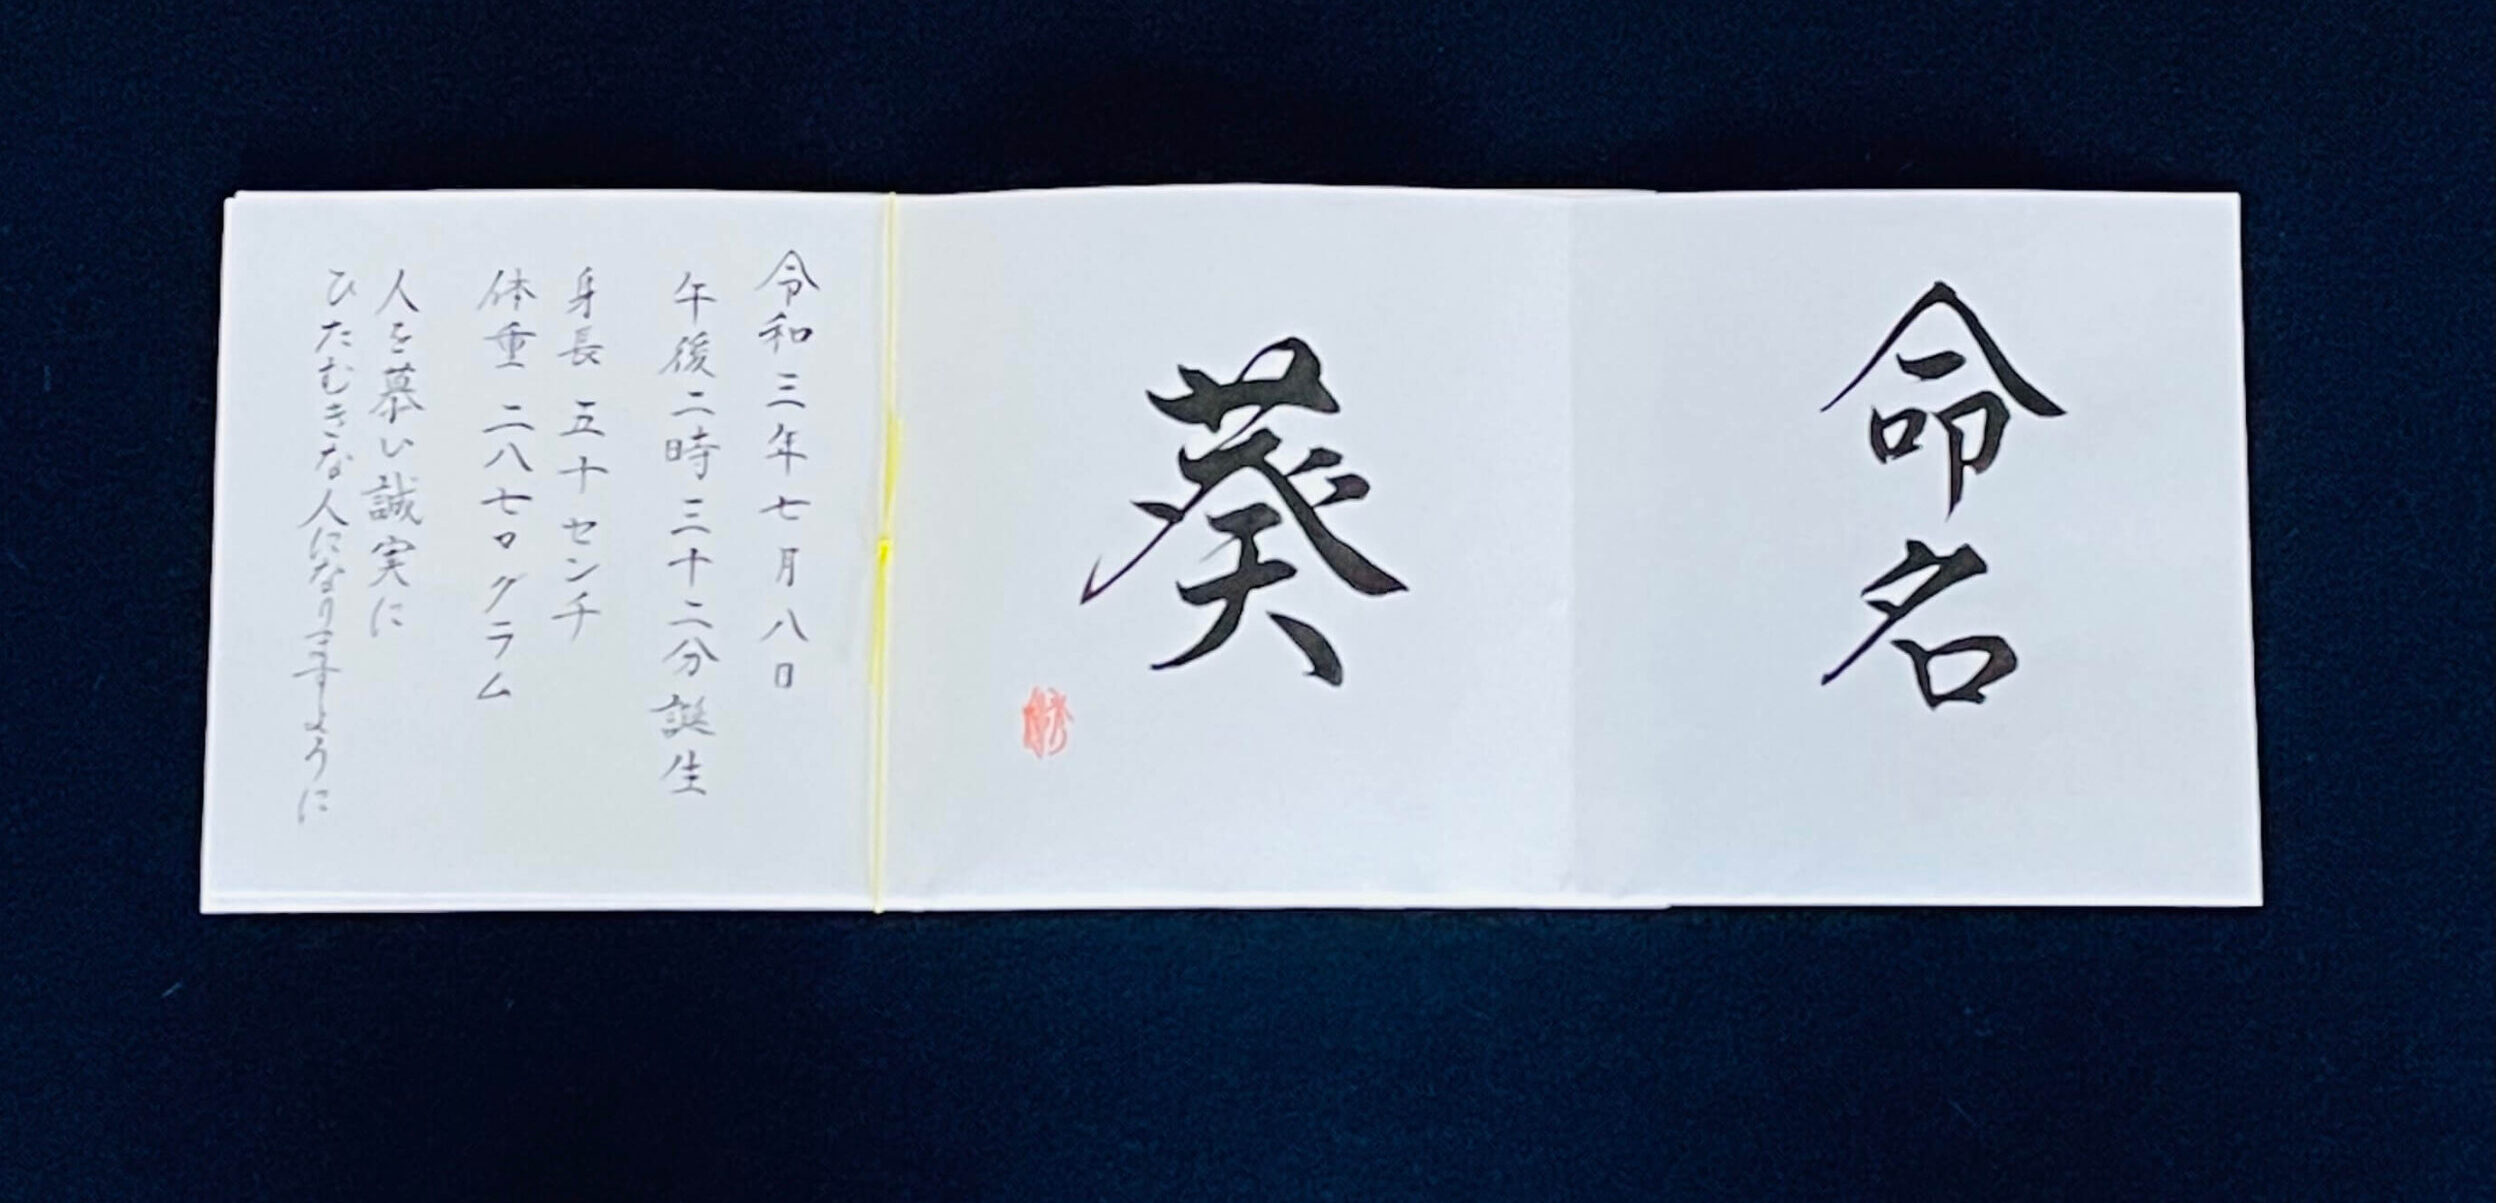 命名
葵
令和三年七月八日
午後二時三十二分誕生
身長 五十センチ
体重 二八七〇グラム
人を慕い誠実に
ひたむきな人になりますように